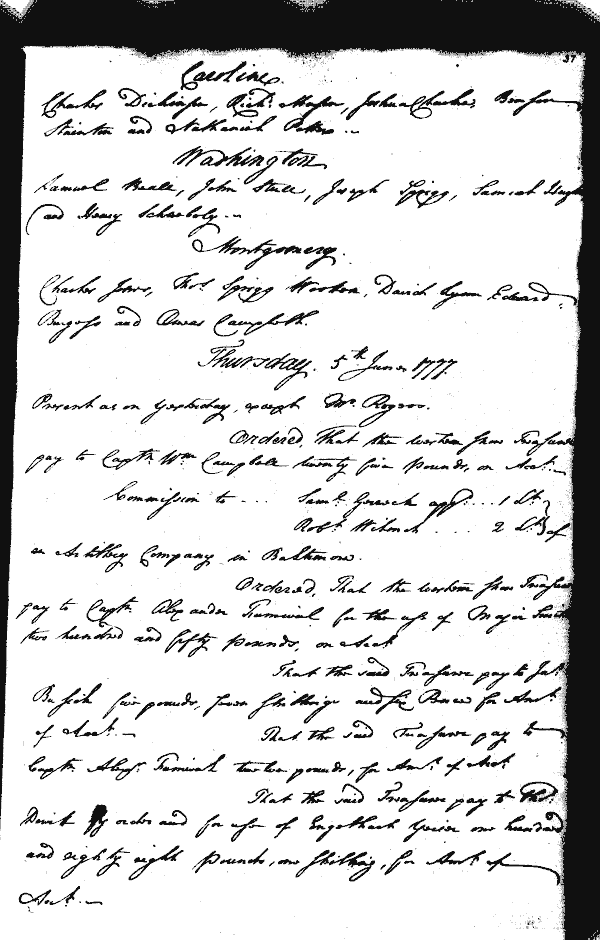 37
Caroline.
Charles Dickinson, Richd. Mason, Joshua Clarke, Benson
Stainton and Nathaniel Potter.
Washington
Samuel Beall, John Stull, Joseph Sprigg, Samuel Hughes
and Henry Schnebely.
Montgomery.
Charles Jones, Thos. Sprigg Wootton, David Lynn Edward
Burgess and Campbell.
Thursday. 5th June 1777
Present as on yesterday, except Mr. Rogers.
Ordered, That the western shore Treasurer
pay to Captn. Wm Campbell twenty five pounds, on Acct.
Commission to ... Saml. appd. ... 1 Lt.
Robt. .... 2 Lt. of
an Artillery Company in Baltimore.
Ordered, That the western shore Treasurer
pay to Captn. Alexander Furnival for the use of Major
two hundred and fifty pounds, on Acct
That the said Treasurer pay to
five pounds, seven shillings and six Pence for Amt.
of Acct.
That the said Treasurer pay to
Captn. Alexr. Furnival twelve pounds, for Amt. of Acct
That the said Treasurer pay to Thos.
Dewitt order and for use of Engelhard Yeiser one hundred
and eighty eight pounds, one shilling, for Amt. of
Acct.